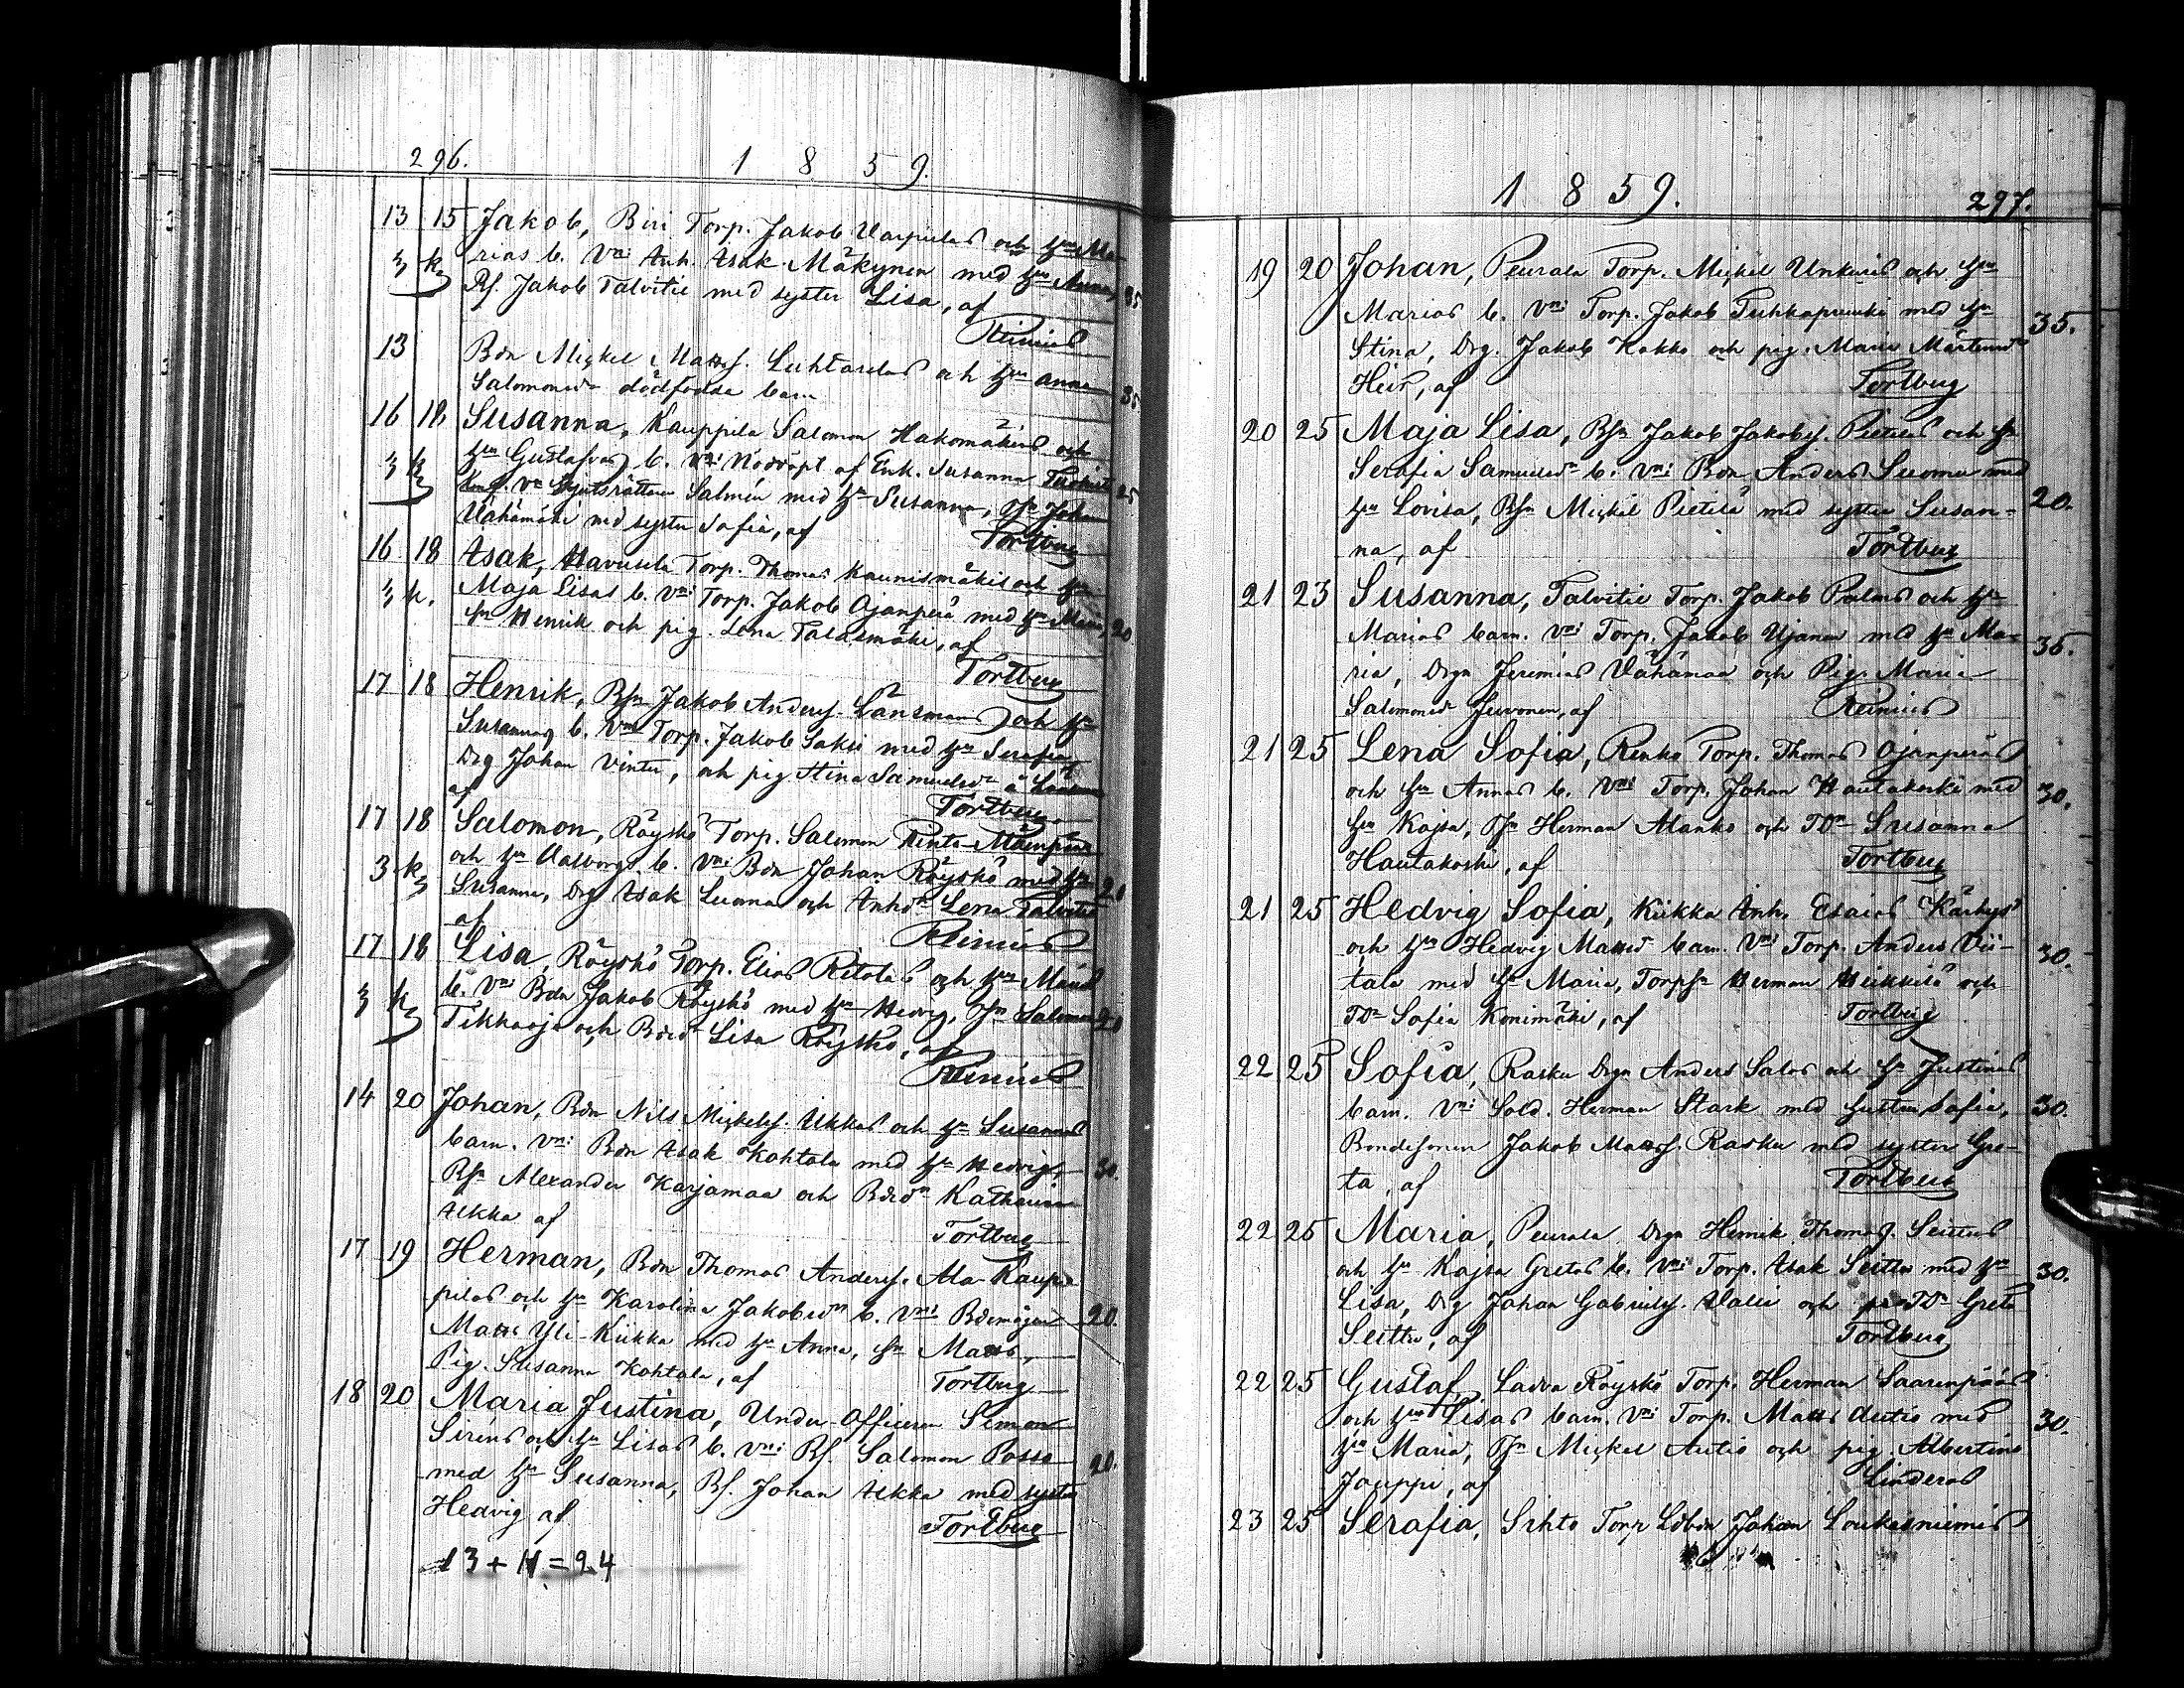 296.
1 8 5 9.
13 15 Jakob, Biri Torp. Jakob Varpulas och hu Ma-
3 k rias b. Vni Inh. Isak Mäkynen med hu Anna,
Bs. Jakob Talvitie med syster Lisa, af 35
Reinius
13 Bdn Mickel Matts. Luhtaselas och hu Anna
Salomonsdr dödfödda barn 35
16 18 Susanna, Kauppila Salomon Hakomäkis och
3 k hu Gustafvas b. Vni Nöddöpt af Enk. Susanna
Vn Salmén med hu Susanna, Js Johan 25
Vähämäki med syster Sofia, af Tortberg
16 18 Isak, Havusela Torp. Thomas Kaunismäkis och hu
3 k. Maja Lisas b. Vni Torp. Jakob Ojanperä med hu Maria, 20
Henrik och pig. Lena Talasmäki, af
Tortberg
17 18 Henrik, Bsn Jakob Anders. Länsmans och hu
Susannas b. Vni Torp. Jakob Saksi med hu Serafia,
Drg Johan Vinter, och pig Stina Samuelsdr
af Tortberg
17 18 Salomon, Röyskö Torp. Salomon Rinta-Mäenpääs
och hu Valborgs b. Vni Bdn Johan Röyskö med hu
3 k Susanna, Drg Isak Luoma och Inhdr Lena Talvitie 20
af Reinius
17 18 Lisa, Röyskö Torp. Elias Ritolas och hu Marias
3 k b. Vni Bdn Jakob Röyskö med hu Hedvig, Js Salomon 20
Tikkaoja och Bdrdr Lisa Röyskö, af
Reinius
14 20 Johan, Bdn Nils Mickels. Ukkas och hu Susannas
barn. Vni Bdn Isak Kohtala med hu Hedvig, 30.
Bsn Alexander Karjamaa och Bdrdr Katharina
Ukka af Tortberg
17 19 Herman, Bdn Thomas Anders. Ala-Kaup-
pilas och hu Karolina Jakobsdrs b. Vni Bdemågen 20.
Matts Yli-Kiikka med hu Anna, Matts,
Pig. Susanna Kohtala, af Tortberg
18 20 Maria Justina, Under-Officeren Simon
Siréns och hu Lisas b. Vni Bs. Salomon Posso
med hu Susanna, Bs. Johan Ukka med syster 20.
Hedvig af Tortberg
13 + 11 = 24
1 8 5 9. 297.
19 20 Johan, Peurala Torp. Mickel Unkuris och hu
Marias b. Vni Torp. Jakob Tuhkapuuki med hu 35.
Stina, Drg. Jakob Kokko och pig. Maria
af Tortberg
20 25 Maja Lisa, Bsn Jakob Jakobs. Pietilas och hu
Serafia Samuelsdrs b. Vni Bdn Anders Luoma med
hu Lovisa, Bsn Mickel Pietilä med syster Susan- 20.
na, af Tortberg
21 23 Susanna, Talvitie Torp. Jakob Palus och hu
Marias barn. Vni Torp. Jakob Ujanen med hu Ma- 35.
ria, Drgn Jeremias Vähämaa och Pig. Maria
Salomonsdr Juvonen, af Reinius
21 25 Lena Sofia, Renko Torp. Thomas Ojanperäs
och hu Annas b. Vni Torp. Johan Hautakoski med 30.
hu Kajsa, Js Herman Alanko och TDr Susanna
Hautakoski, af Tortberg
21 25 Hedvig Sofia, Kiikka Inh. Esaias Kärkys
och hu Hedvig Mattsdrs barn. Vni Torp. Anders Vii- 30.
tala med hu Maria, Torpsn Herman Heikkilä och
TDr Sofia Konimäki, af Tortberg
22 25 Sofia, Rasku Drgn Anders Salos och hu Justinas
barn. Vni Sold. Herman Stark med hustru Sofia, 30.
Bondesonen Jakob Matts. Rasku med syster Gre-
ta, af Tortberg
22 25 Maria, Peurala Drgn Henrik Thomas. Seittus
och hu Kajsa Gretas b. Vni Torp. Isak Seittu med hu 30.
Lisa, Drg Johan Gabriels. Valli och TDr Greta
Seittu, af Tortberg
22 25 Gustaf, Ladva Röyskö Torp. Herman Saarenpääs
och hu Lisas barn. Vni Torp. Matts Autio med 30.
hu Maria, Js Mickel Autio och pig. Albertina
Jouppi, af Linderos
23 25 Serafia, Sihto Torp Johan Loukasniemis